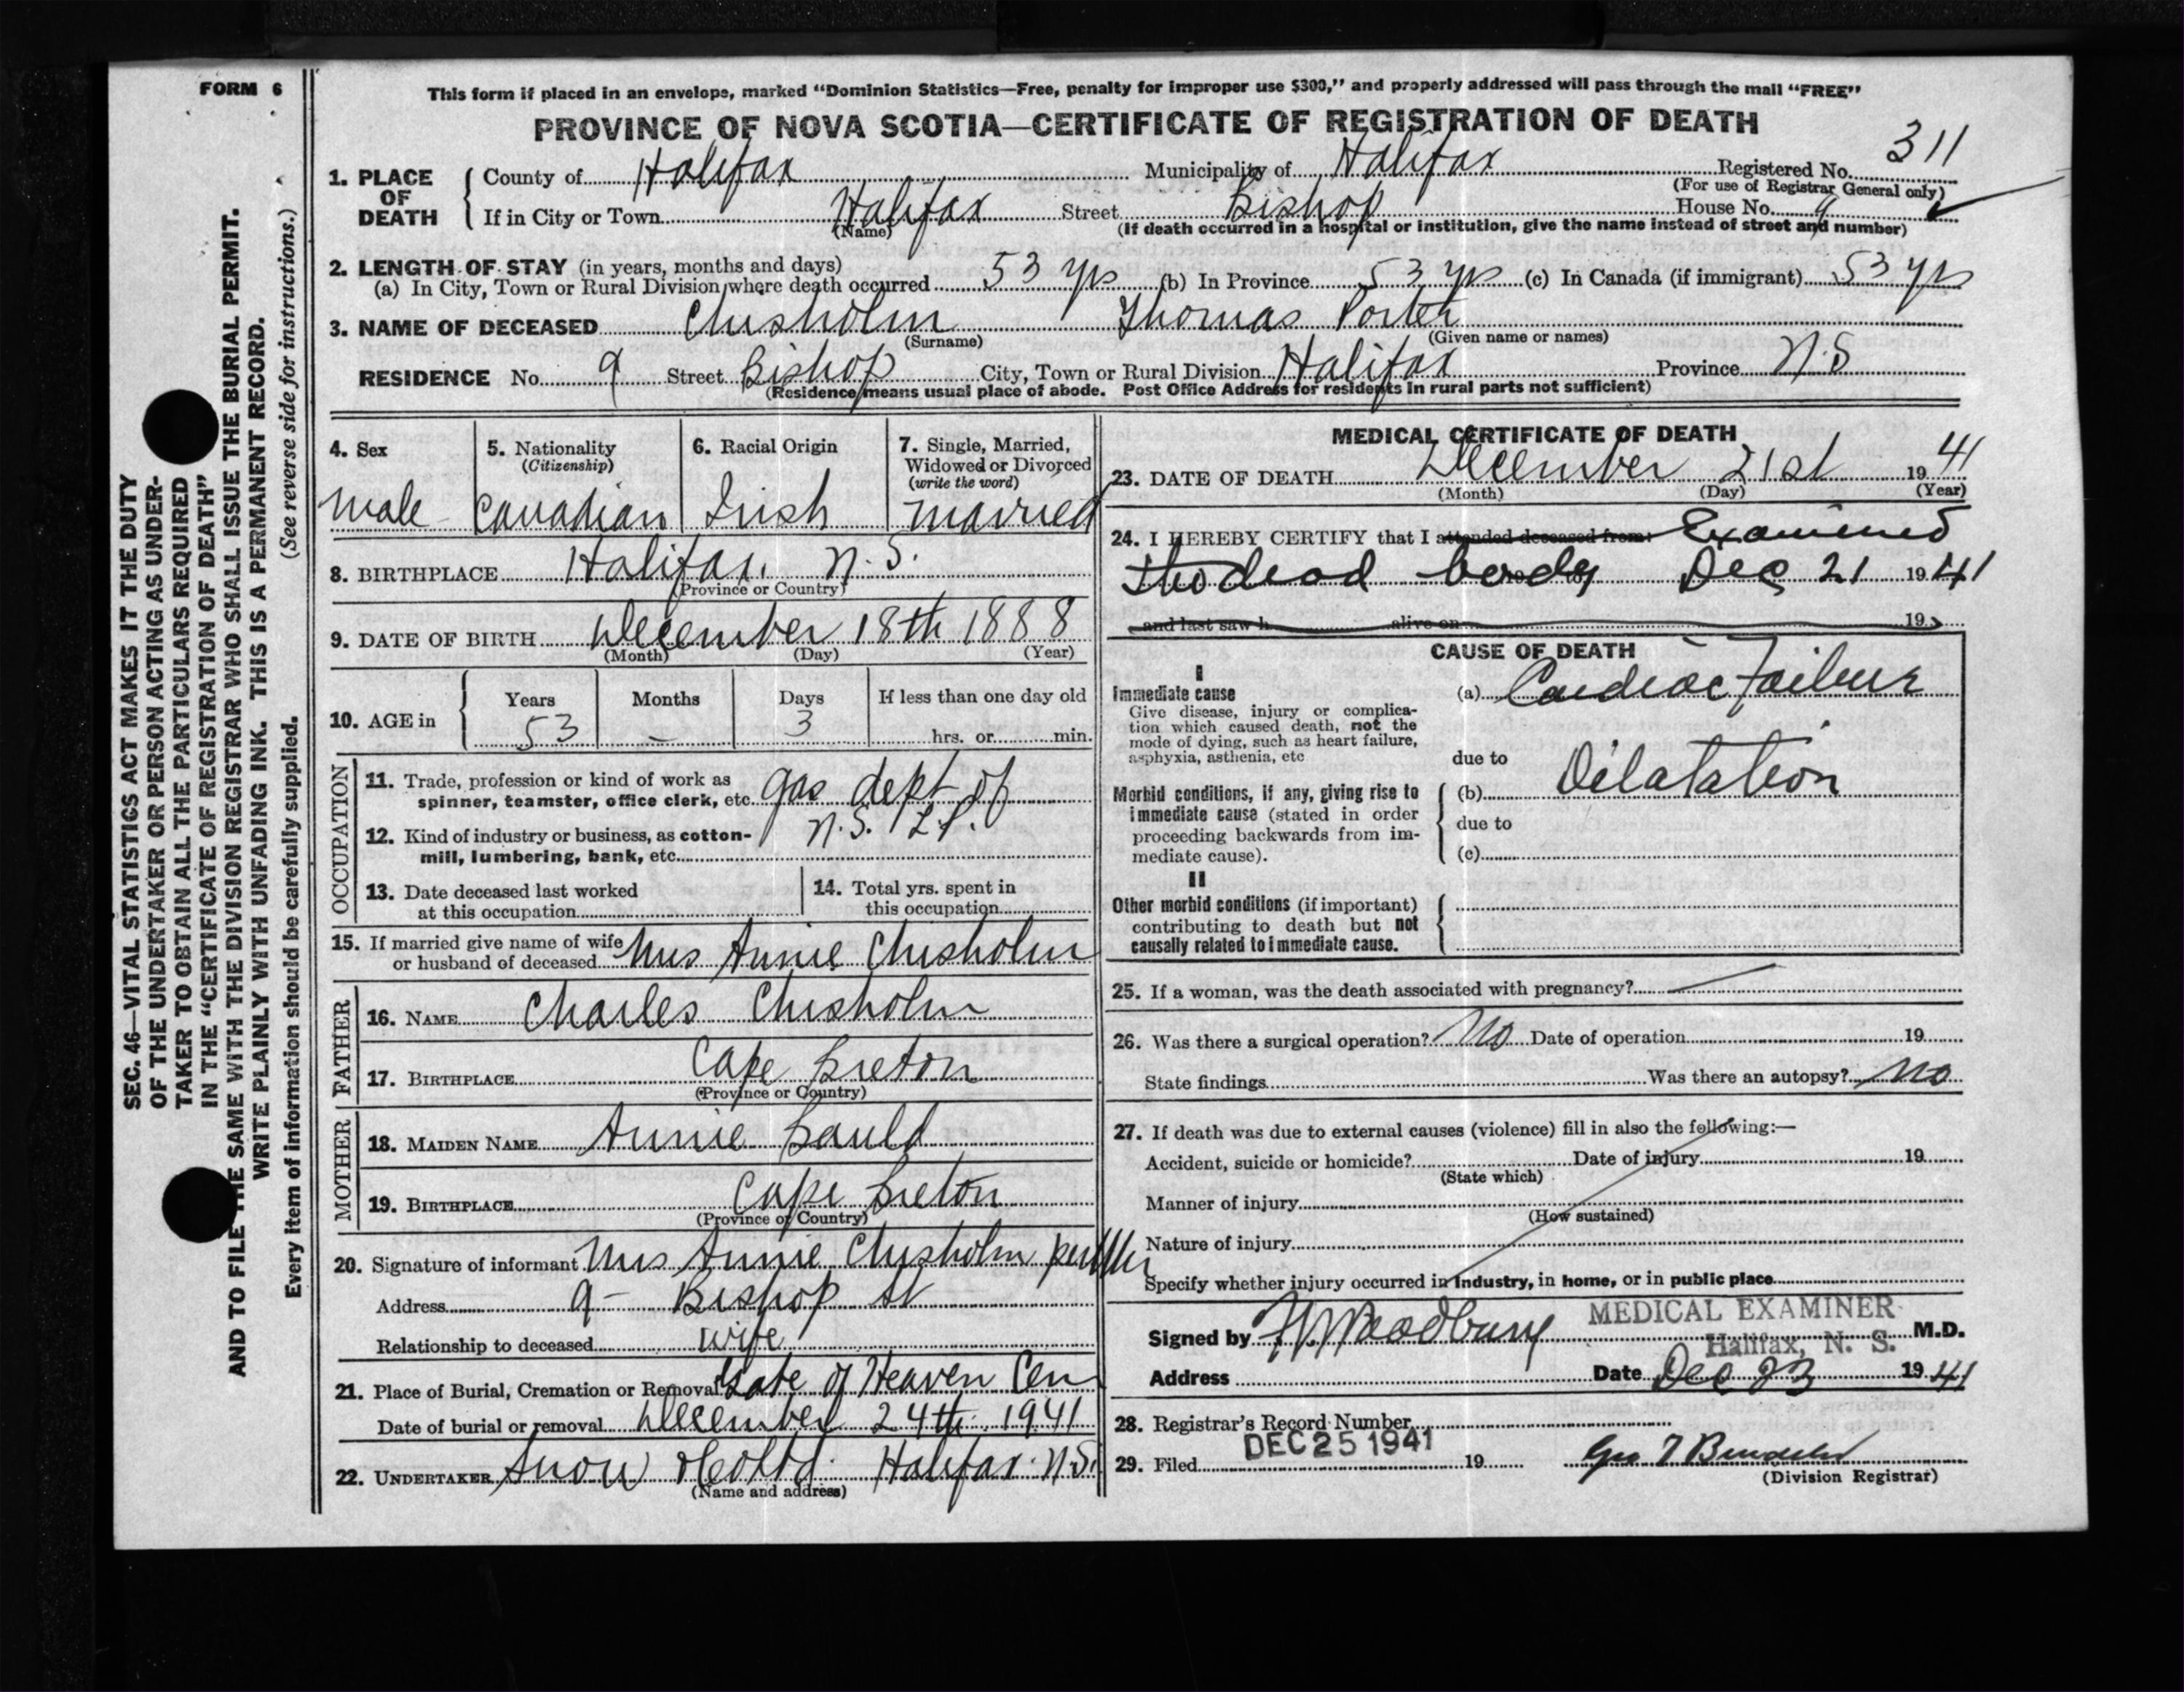 FORM 6
This form if placed in an envelope, marked “Dominion Statistics—Free, penalty for improper use $300,” and properly addressed will pass through the mail “FREE”
PROVINCE OF NOVA SCOTIA—CERTIFICATE OF REGISTRATION OF DEATH
1. PLACE OF DEATH
County of Halifax Municipality of Halifax Registered No. 311
(For use of Registrar General only)
If in City or Town Halifax Street Bishop House No. 9
(Name) (If death occurred in a hospital or institution, give the name instead of street and number)
2. LENGTH OF STAY (in years, months and days)
(a) In City, Town or Rural Division where death occurred 53 yrs (b) In Province 53 yrs (c) In Canada (if immigrant) 53 yrs
3. NAME OF DECEASED Chisholm Thomas Porter
(Surname) (Given name or names)
RESIDENCE No. 9 Street Bishop City, Town or Rural Division Halifax Province N.S
(Residence means usual place of abode. Post Office Address for residents in rural parts not sufficient)
4. Sex
male
5. Nationality
(Citizenship)
Canadian
6. Racial Origin
Irish
7. Single, Married,
Widowed or Divorced
(write the word)
married
8. BIRTHPLACE Halifax, N.S.
(Province or Country)
9. DATE OF BIRTH December 18th 1888
(Month) (Day) (Year)
10. AGE in
Years Months Days If less than one day old
53 – 3 hrs. or min.
OCCUPATION
11. Trade, profession or kind of work as
spinner, teamster, office clerk, etc. gas dept of
12. Kind of industry or business, as cotton- N.S. L.P.
mill, lumbering, bank, etc.
13. Date deceased last worked
at this occupation
14. Total yrs. spent in
this occupation
15. If married give name of wife
or husband of deceased Mrs Annie Chisholm
FATHER
16. NAME Charles Chisholm
17. BIRTHPLACE Cape Breton
(Province or Country)
MOTHER
18. MAIDEN NAME Annie Bauld
19. BIRTHPLACE Cape Breton
(Province or Country)
20. Signature of informant Mrs Annie Chisholm per
Address 9 – Bishop St
Relationship to deceased wife
21. Place of Burial, Cremation or Removal Gate of Heaven Cem
Date of burial or removal December 24th 1941
22. UNDERTAKER Snow & Co Ltd. Halifax N.S.
(Name and address)
MEDICAL CERTIFICATE OF DEATH
23. DATE OF DEATH December 21st 1941
(Month) (Day) (Year)
24. I HEREBY CERTIFY that I attended deceased from: Examined
the dead body Dec 21 1941
and last saw h alive on 19
CAUSE OF DEATH
I
Immediate cause
Give disease, injury or complica-
tion which caused death, not the
mode of dying, such as heart failure,
asphyxia, asthenia, etc
(a) Cardiac Failure
due to
Morbid conditions, if any, giving rise to
immediate cause (stated in order
proceeding backwards from im-
mediate cause).
(b) Dilatation
due to
(c)
II
Other morbid conditions (if important)
contributing to death but not
causally related to immediate cause.
25. If a woman, was the death associated with pregnancy? —
26. Was there a surgical operation? No Date of operation 19
State findings Was there an autopsy? No
27. If death was due to external causes (violence) fill in also the following:—
Accident, suicide or homicide? Date of injury 19
(State which)
Manner of injury
(How sustained)
Nature of injury
Specify whether injury occurred in Industry, in home, or in public place
MEDICAL EXAMINER
Signed by Woodbury Halifax, N. S. M.D.
Address Date Dec 23 1941
28. Registrar's Record Number
29. Filed DEC 25 1941 19
(Division Registrar)
SEC. 46—VITAL STATISTICS ACT MAKES IT THE DUTY
OF THE UNDERTAKER OR PERSON ACTING AS UNDER-
TAKER TO OBTAIN ALL THE PARTICULARS REQUIRED
IN THE “CERTIFICATE OF REGISTRATION OF DEATH”
AND TO FILE THE SAME WITH THE DIVISION REGISTRAR WHO SHALL ISSUE THE BURIAL PERMIT.
WRITE PLAINLY WITH UNFADING INK. THIS IS A PERMANENT RECORD.
Every item of information should be carefully supplied. (See reverse side for instructions.)